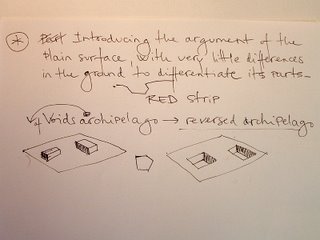 * Introducing the argument of the
plain surface, with very little differences
in the ground, to differentiate its parts.
RED STRIP
Voids archipelago → reversed archipelago